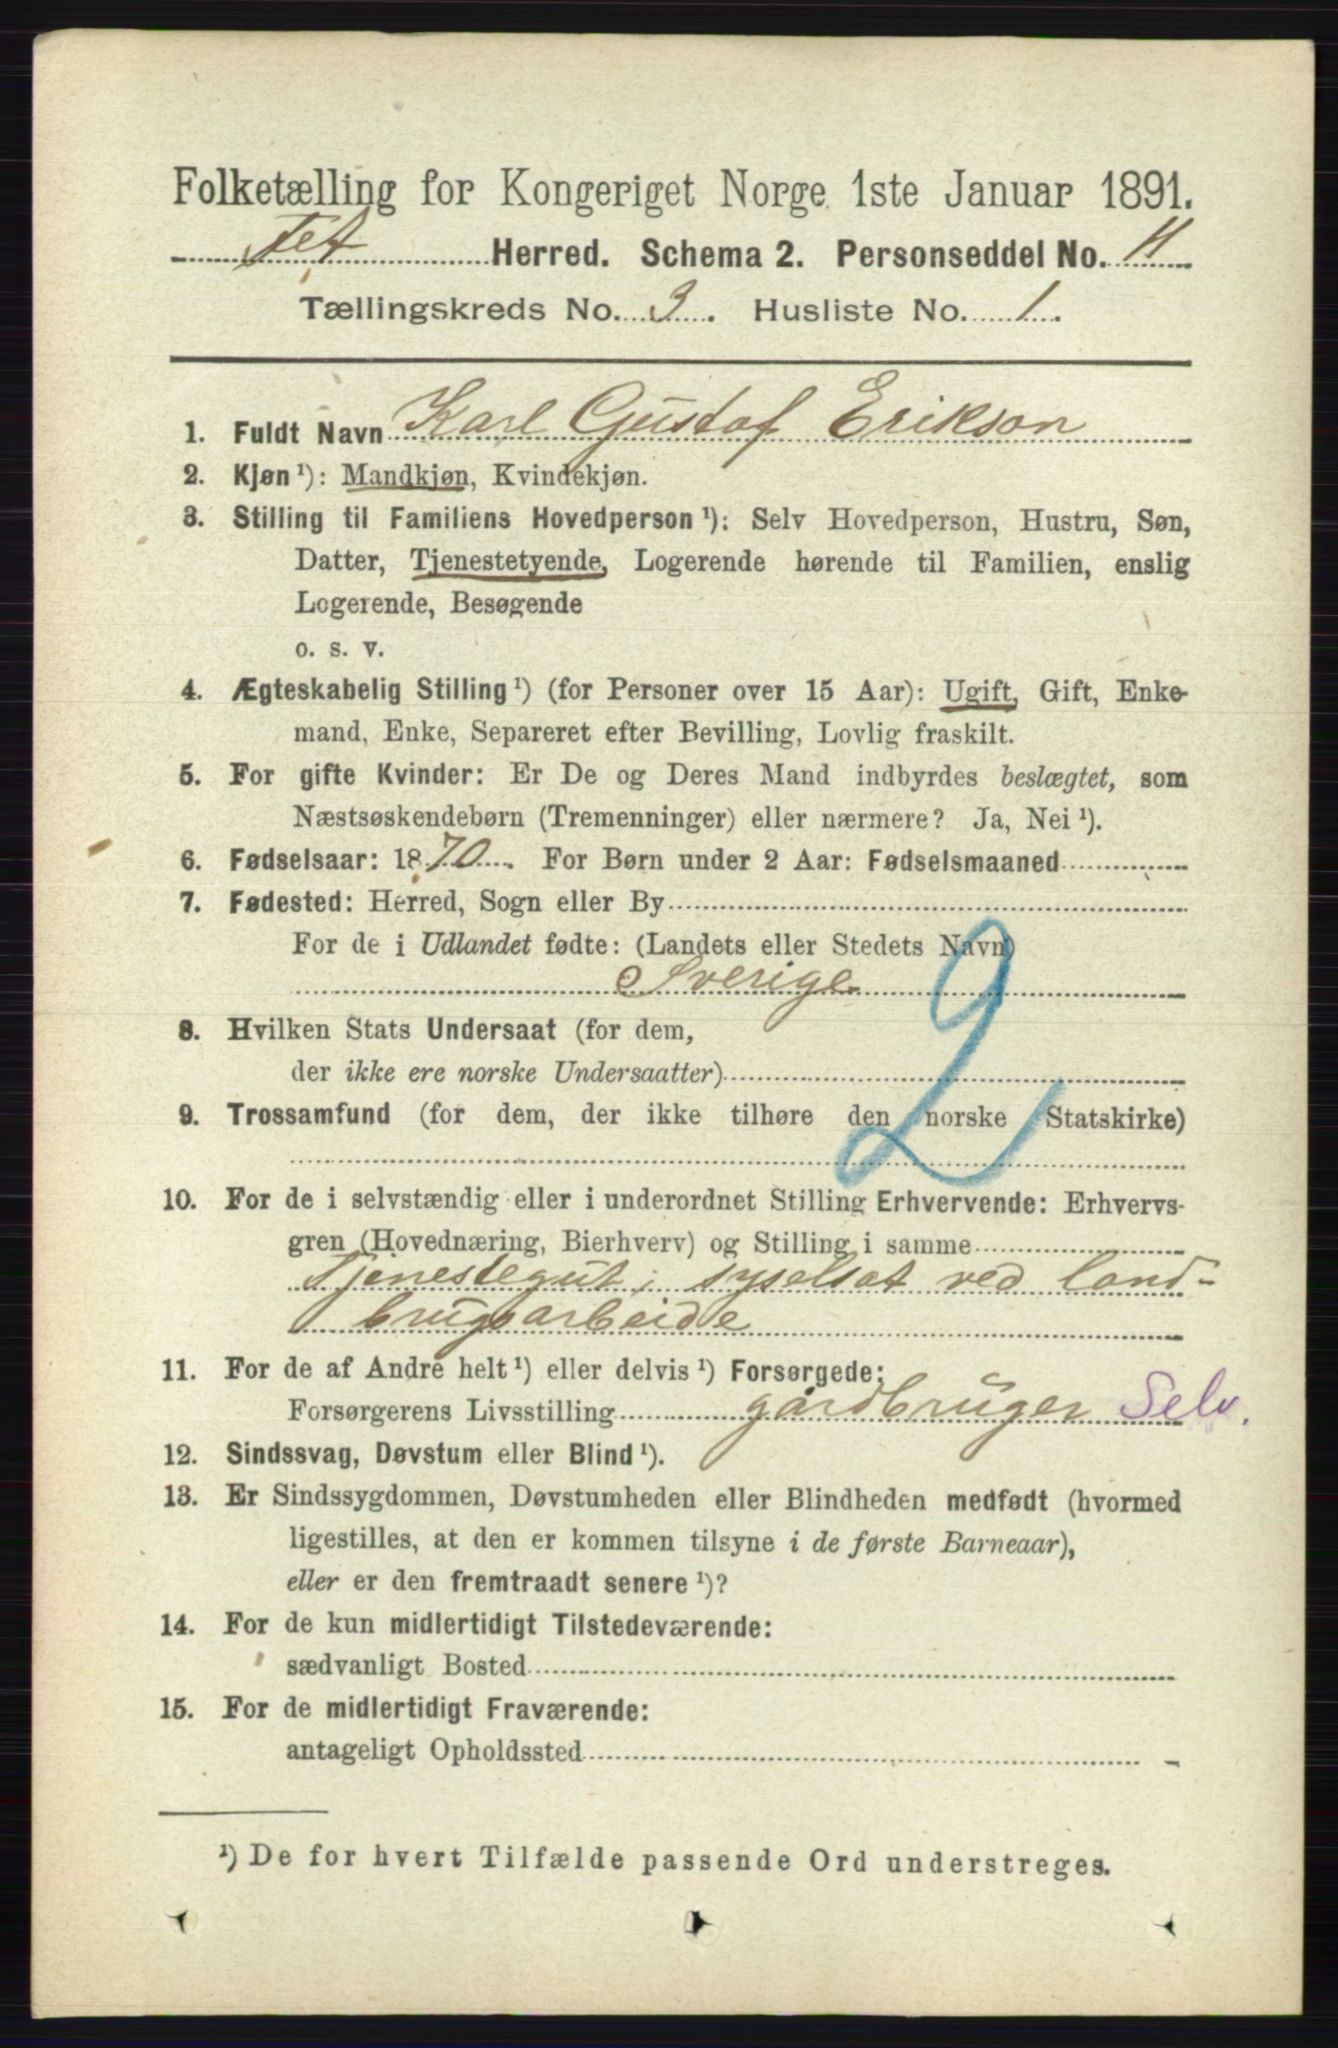 Folketælling for Kongeriget Norge 1ste Januar 1891.
Fet Herred. Schema 2. Personseddel No. 11
Tællingskreds No. 3. Husliste No. 1.
1. Fuldt Navn Karl Gustaf Erikson
2. Kjøn¹): Mandkjøn, Kvindekjøn.
3. Stilling til Familiens Hovedperson¹): Selv Hovedperson, Hustru, Søn,
Datter, Tjenestetyende, Logerende hørende til Familien, enslig
Logerende, Besøgende
o. s. v.
4. Ægteskabelig Stilling¹) (for Personer over 15 Aar): Ugift, Gift, Enke-
mand, Enke, Separeret efter Bevilling, Lovlig fraskilt.
5. For gifte Kvinder: Er De og Deres Mand indbyrdes beslægtet, som
Næstsøskendebørn (Tremenninger) eller nærmere? Ja, Nei¹).
6. Fødselsaar: 1870. For Børn under 2 Aar: Fødselsmaaned
7. Fødested: Herred, Sogn eller By
For de i Udlandet fødte: (Landets eller Stedets Navn)
Sverige
8. Hvilken Stats Undersaat (for dem,
der ikke ere norske Undersaatter)
9. Trossamfund (for dem, der ikke tilhøre den norske Statskirke)
2
10. For de i selvstændig eller i underordnet Stilling Erhvervende: Erhvervs-
gren (Hovednæring, Bierhverv) og Stilling i samme
Tjenestegut; syselsat ved land-
brugsarbeide
11. For de af Andre helt¹) eller delvis¹) Forsørgede:
Forsørgerens Livsstilling gårdbruger Selv.
12. Sindssvag, Døvstum eller Blind¹).
13. Er Sindssygdommen, Døvstumheden eller Blindheden medfødt (hvormed
ligestilles, at den er kommen tilsyne i de første Barneaar),
eller er den fremtraadt senere¹)?
14. For de kun midlertidigt Tilstedeværende:
sædvanligt Bosted
15. For de midlertidigt Fraværende:
antageligt Opholdssted
¹) De for hvert Tilfælde passende Ord understreges.